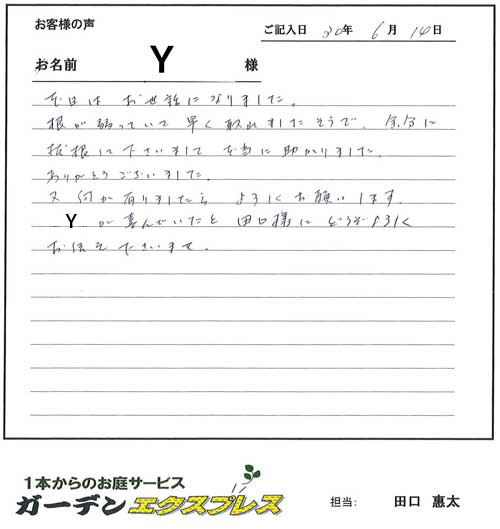 お客様の声
ご記入日 30年 6月 14日
お名前 Y 様
本日は お世話になりました。
根が弱っていて 早く取れましたそうで、余分に
抜根して下さいまして 本当に助かりました。
ありがとうございました。
又 何か有りましたら よろしくお願いします。
Yが喜んでいたと 田口様に どうぞよろしく
お伝え下さいませ。
1本からのお庭サービス
ガーデンエクスプレス
担当: 田口 惠太